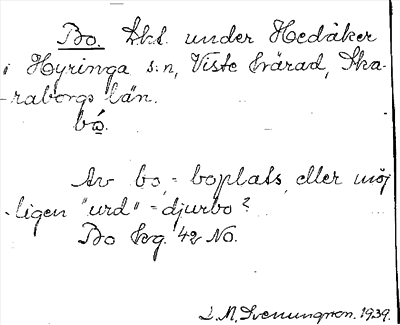 Bo. Lht. under Hedåker
i Hyringa s:n, Viste härad, Ska-
raborgs län.
bó.
Av bo, = boplats, eller möj
ligen "urd" = djurbo?
Bo kg. 42 No.
L.M. Svenungsson. 1939.